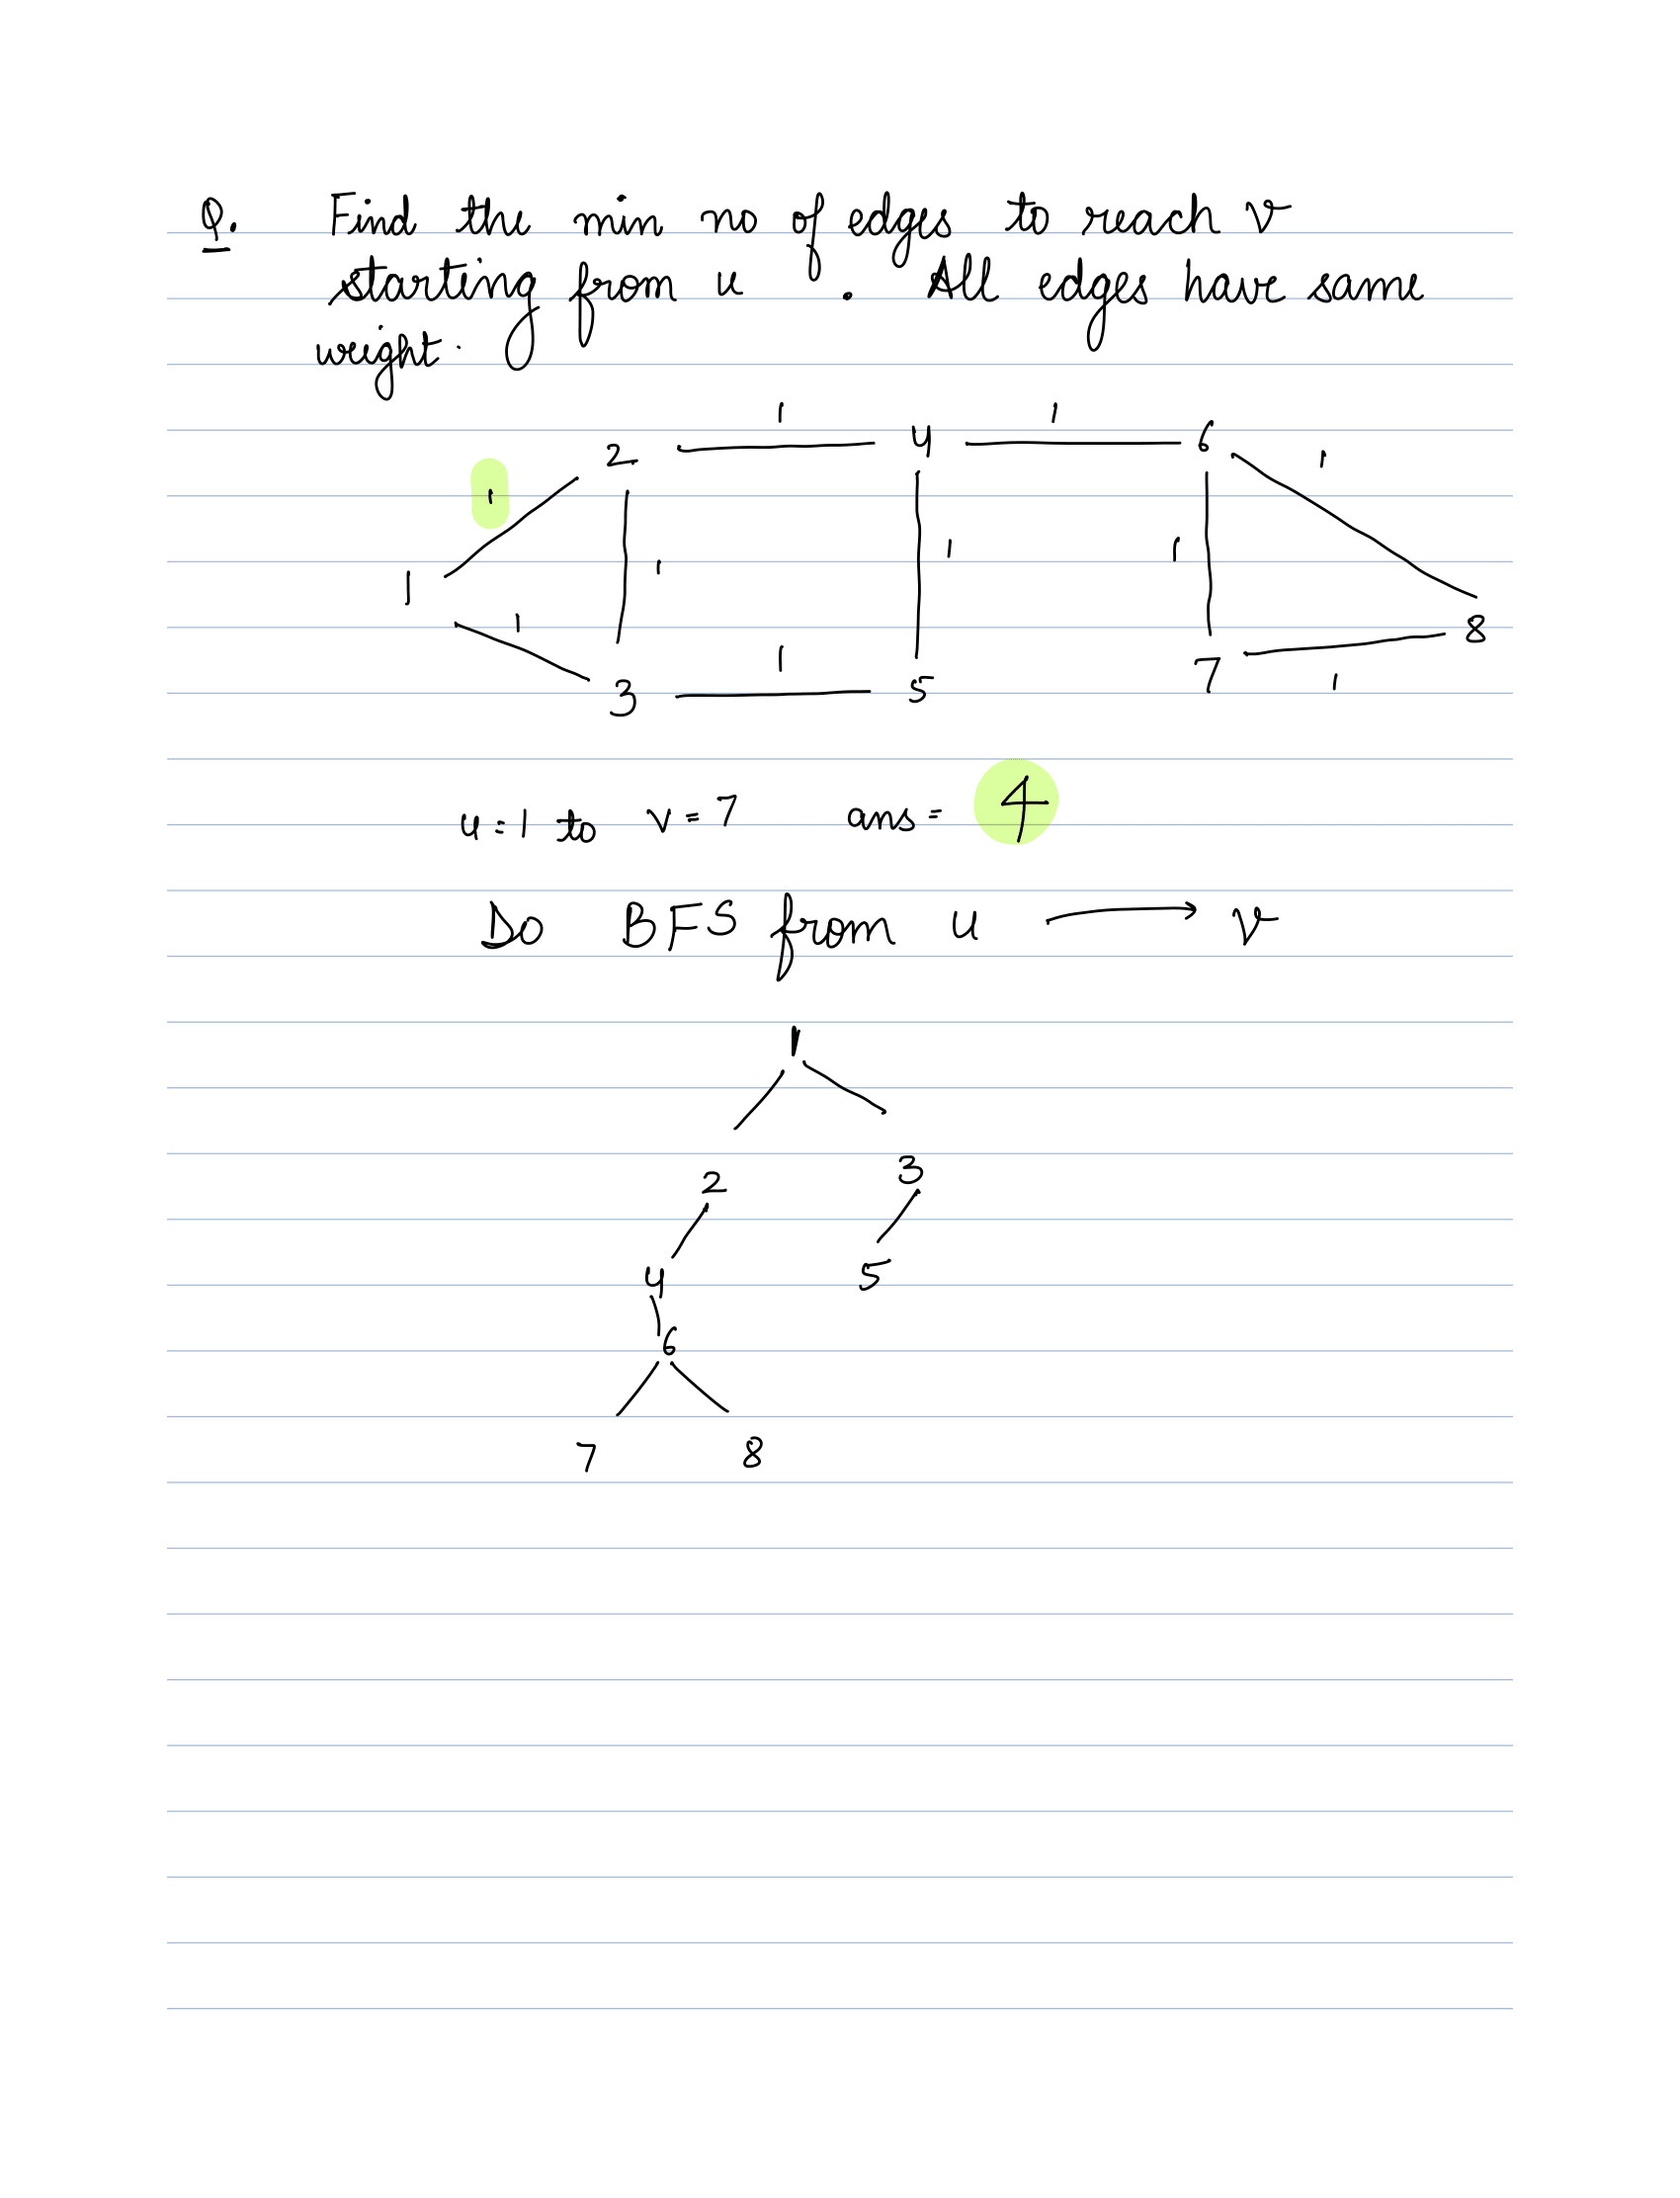 Q. Find the min no of edges to reach v
starting from u . All edges have same
weight.
1 1
2 4 6 1
1
1 1 1
1
1 8
1 7
3 5 1
u=1 to v=7 ans= 4
Do BFS from u → v
1
2 3
4 5
6
7 8